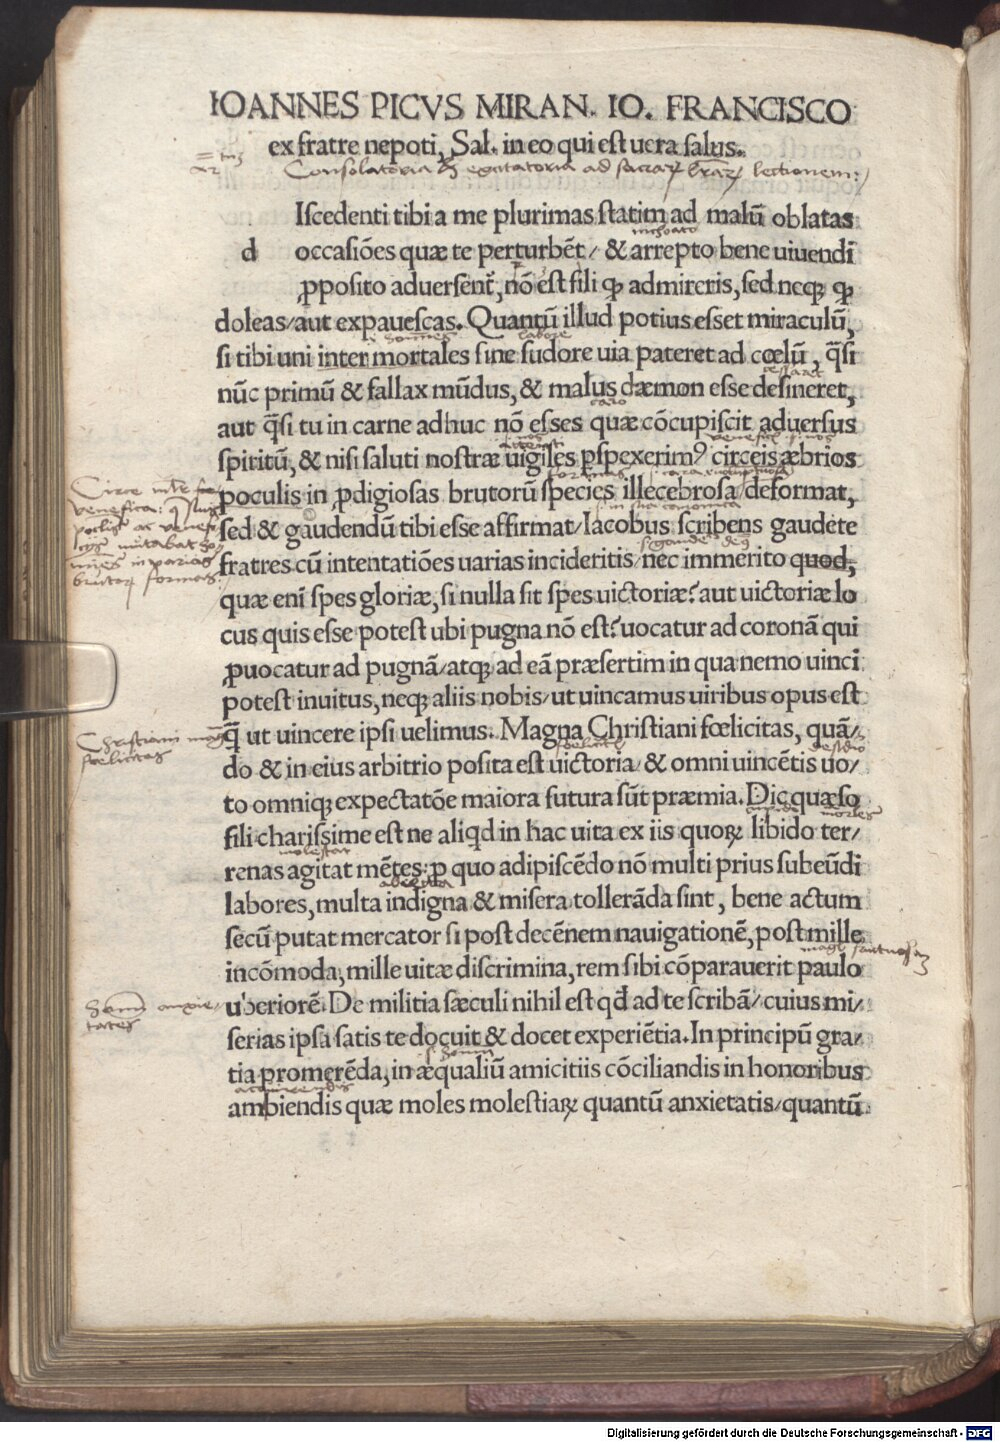 IOANNES PICVS MIRAN. IO. FRANCISCO
ex fratre nepoti, Sal. in eo qui est uera salus.
Consolatoria & exhortatoria ad sacrarꝝ lrarꝝ lectionem:
Iscedenti tibi a me plurimas statim ad malū oblatas
d occasiões quæ te perturbēt/ & arrepto bene uiuendi
inchoato
ꝓposito aduersent̃, nō est fili qꝫ admireris, sed neqꝫ qꝫ
doleas/aut expauescas. Quantū illud potius esset miraculū,
homines labore
si tibi uni inter mortales sine sudore uia pateret ad cœlū, q̃si
cessaret
nūc primū & fallax mūdus, & malus dæmon esse desineret,
caro
aut q̃si tu in carne adhuc nō esses quæ cōcupiscit aduersus
spiritū, & nisi saluti nostræ uigiles ꝑspexerimꝰ circeis æbrios
formas
poculis in ꝓdigiosas brutorū species illecebrosa/deformat,
in sua canonica
sed & gaudendū tibi esse affirmat/Iacobus scribens gaudete
fratres cū intentatiões uarias incideritis/nec immerito quod,
quæ eni spes gloriæ, si nulla sit spes uictoriæ? aut uictoriæ lo
cus quis esse potest ubi pugna nō est? uocatur ad coronā qui
ꝓuocatur ad pugnā/atqꝫ ad eā præsertim in qua nemo uinci
potest inuitus, neqꝫ aliis nobis/ut uincamus uiribus opus est
q̃ ut uincere ipsi uelimus. Magna Christiani fœlicitas, quā/
do & in eius arbitrio posita est uictoria/& omni uincētis uo/
desiderio
to omniqꝫ expectatōe maiora futura sūt præmia. Dic quæso
fili charissime est ne aliqd in hac uita ex iis quorꝝ libido ter/
molestat
renas agitat mētes: ꝑ quo adipiscēdo nō multi prius subeūdi
labores, multa indigna & misera tollerāda sint, bene actum
secū putat mercator si post decēnem nauigationē, post mille
incōmoda, mille uitæ discrimina, rem sibi cōparauerit paulo
uberiorē. De militia sæculi nihil est qd ad te scribā/cuius mi/
serias ipsa satis te docuit & docet experiētia. In principū gra/
tia promerēda, in æqualiū amicitiis cōciliandis in honoribus
acquirendis
ambiendis quæ moles molestiarꝝ quantū anxietatis/quantū
Circe
venefica:
poculis ac venefi
ciis mutabat ho
mines in varias
brutorꝝ formas:
Christiani magna
fœlicitas
anxie/
tates
Digitalisierung gefördert durch die Deutsche Forschungsgemeinschaft - DFG